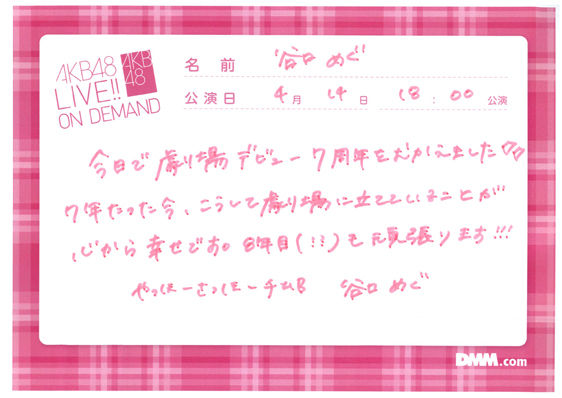 AKB48
LIVE!!
ON DEMAND
AKB
48
名前 谷口 めぐ
公演日 4月 14日 18:00 公演
今日で劇場デビュー7周年をむかえました♡♡
7年たった今、こうして劇場に立てていることが
心から幸せです。8年目(!!!)も頑張ります!!!
やっほーさっほーチームB 谷口 めぐ
DMM.com